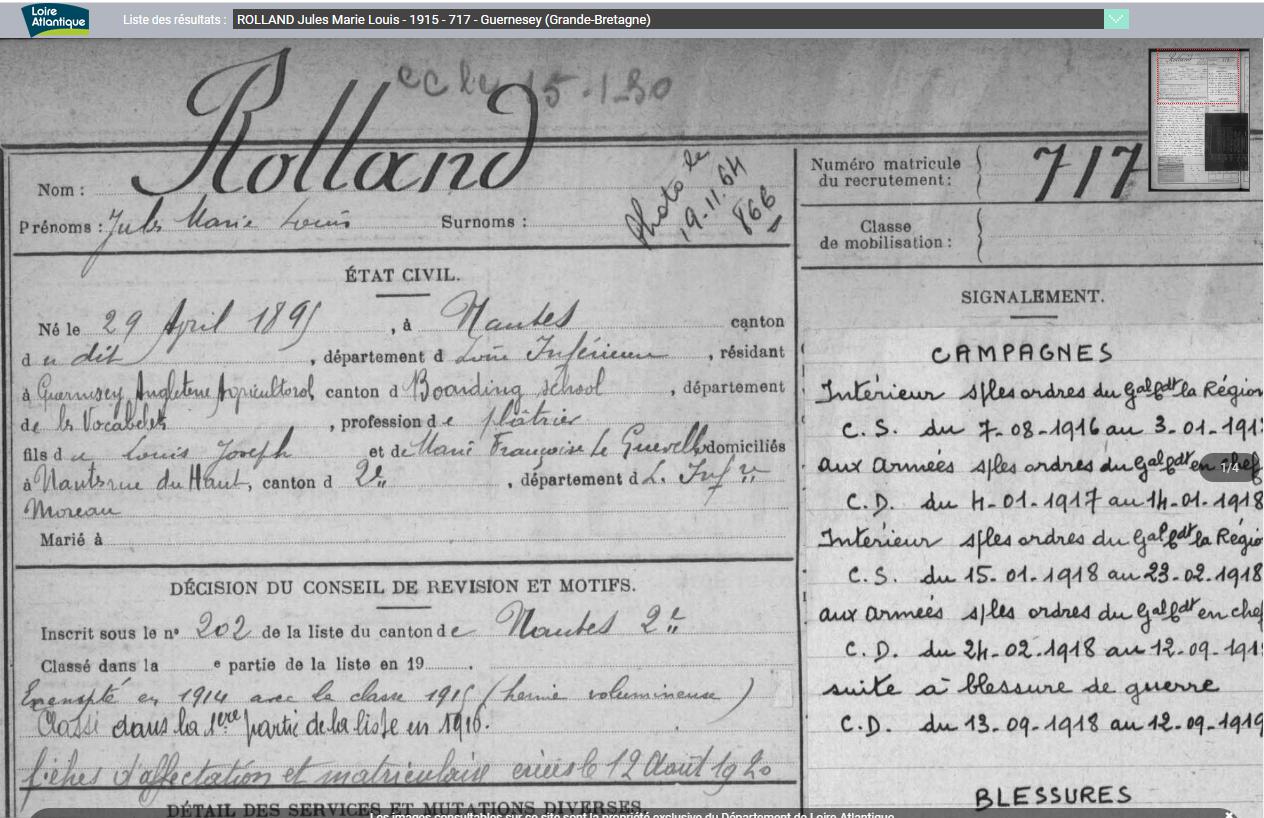 Loire
Atlantique
Liste des résultats :
ROLLAND Jules Marie Louis - 1915 - 717 - Guernesey (Grande-Bretagne)
5-1-30
Nom : Rolland
Prénoms : Jules Marie Louis
Surnoms :
Photo le
19.11.64
866
ÉTAT CIVIL.
Né le 29 April 1895, à Nantes canton
du dit, département d Loire Inférieure, résidant
à Guernesey Angleterre Agricultural canton d Boarding school, département
de les Vocabelets, profession de plâtrier
fils du Louis Joseph et de Marie Françoise Le Guevello domiciliés
à Nantes rue du Haut, canton d 2e, département d L. Infre
Moreau
Marié à
DÉCISION DU CONSEIL DE REVISION ET MOTIFS.
Inscrit sous le n° 202 de la liste du canton de Nantes 2e
Classé dans la e partie de la liste en 19 .
Exempté en 1914 avec la classe 1915 (hernie volumineuse)
Classé dans la 1ère partie de la liste en 1916.
fiches d'affectation et matriculaire créées le 12 Août 1920
DÉTAIL DES SERVICES ET MUTATIONS DIVERSES.
Numéro matricule
du recrutement : 717
Classe
de mobilisation :
SIGNALEMENT.
CAMPAGNES
Intérieur s/les ordres du Gal Cdt la Région
C.S. du 7-08-1916 au 3-01-191
aux armées s/les ordres du Gal Cdt en chef
1/4
C.D. du 4-01-1917 au 14-01-1918
Intérieur s/les ordres du Gal Cdt la Régio
C.S. du 15.01.1918 au 23-02-1918
aux armées s/les ordres du Gal Cdt en chef
C.D. du 24-02-1918 au 12-09-191
suite à blessure de guerre
C.D. du 13.09-1918 au 12-09-1919
BLESSURES
Les images consultables sur ce site sont la propriété exclusive du Département de Loire Atlantique